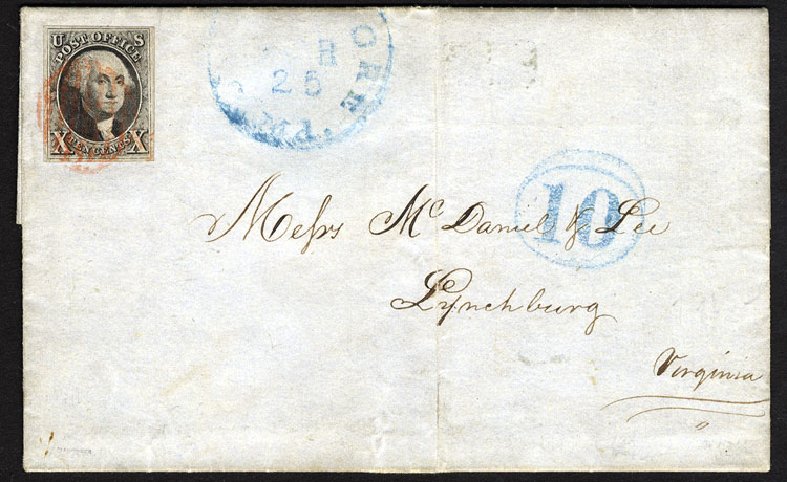 U S
POST OFFICE
X TEN CENTS X
ORE
25
Md.
10
Messrs McDaniel & Lee
Lynchburg
Virginia